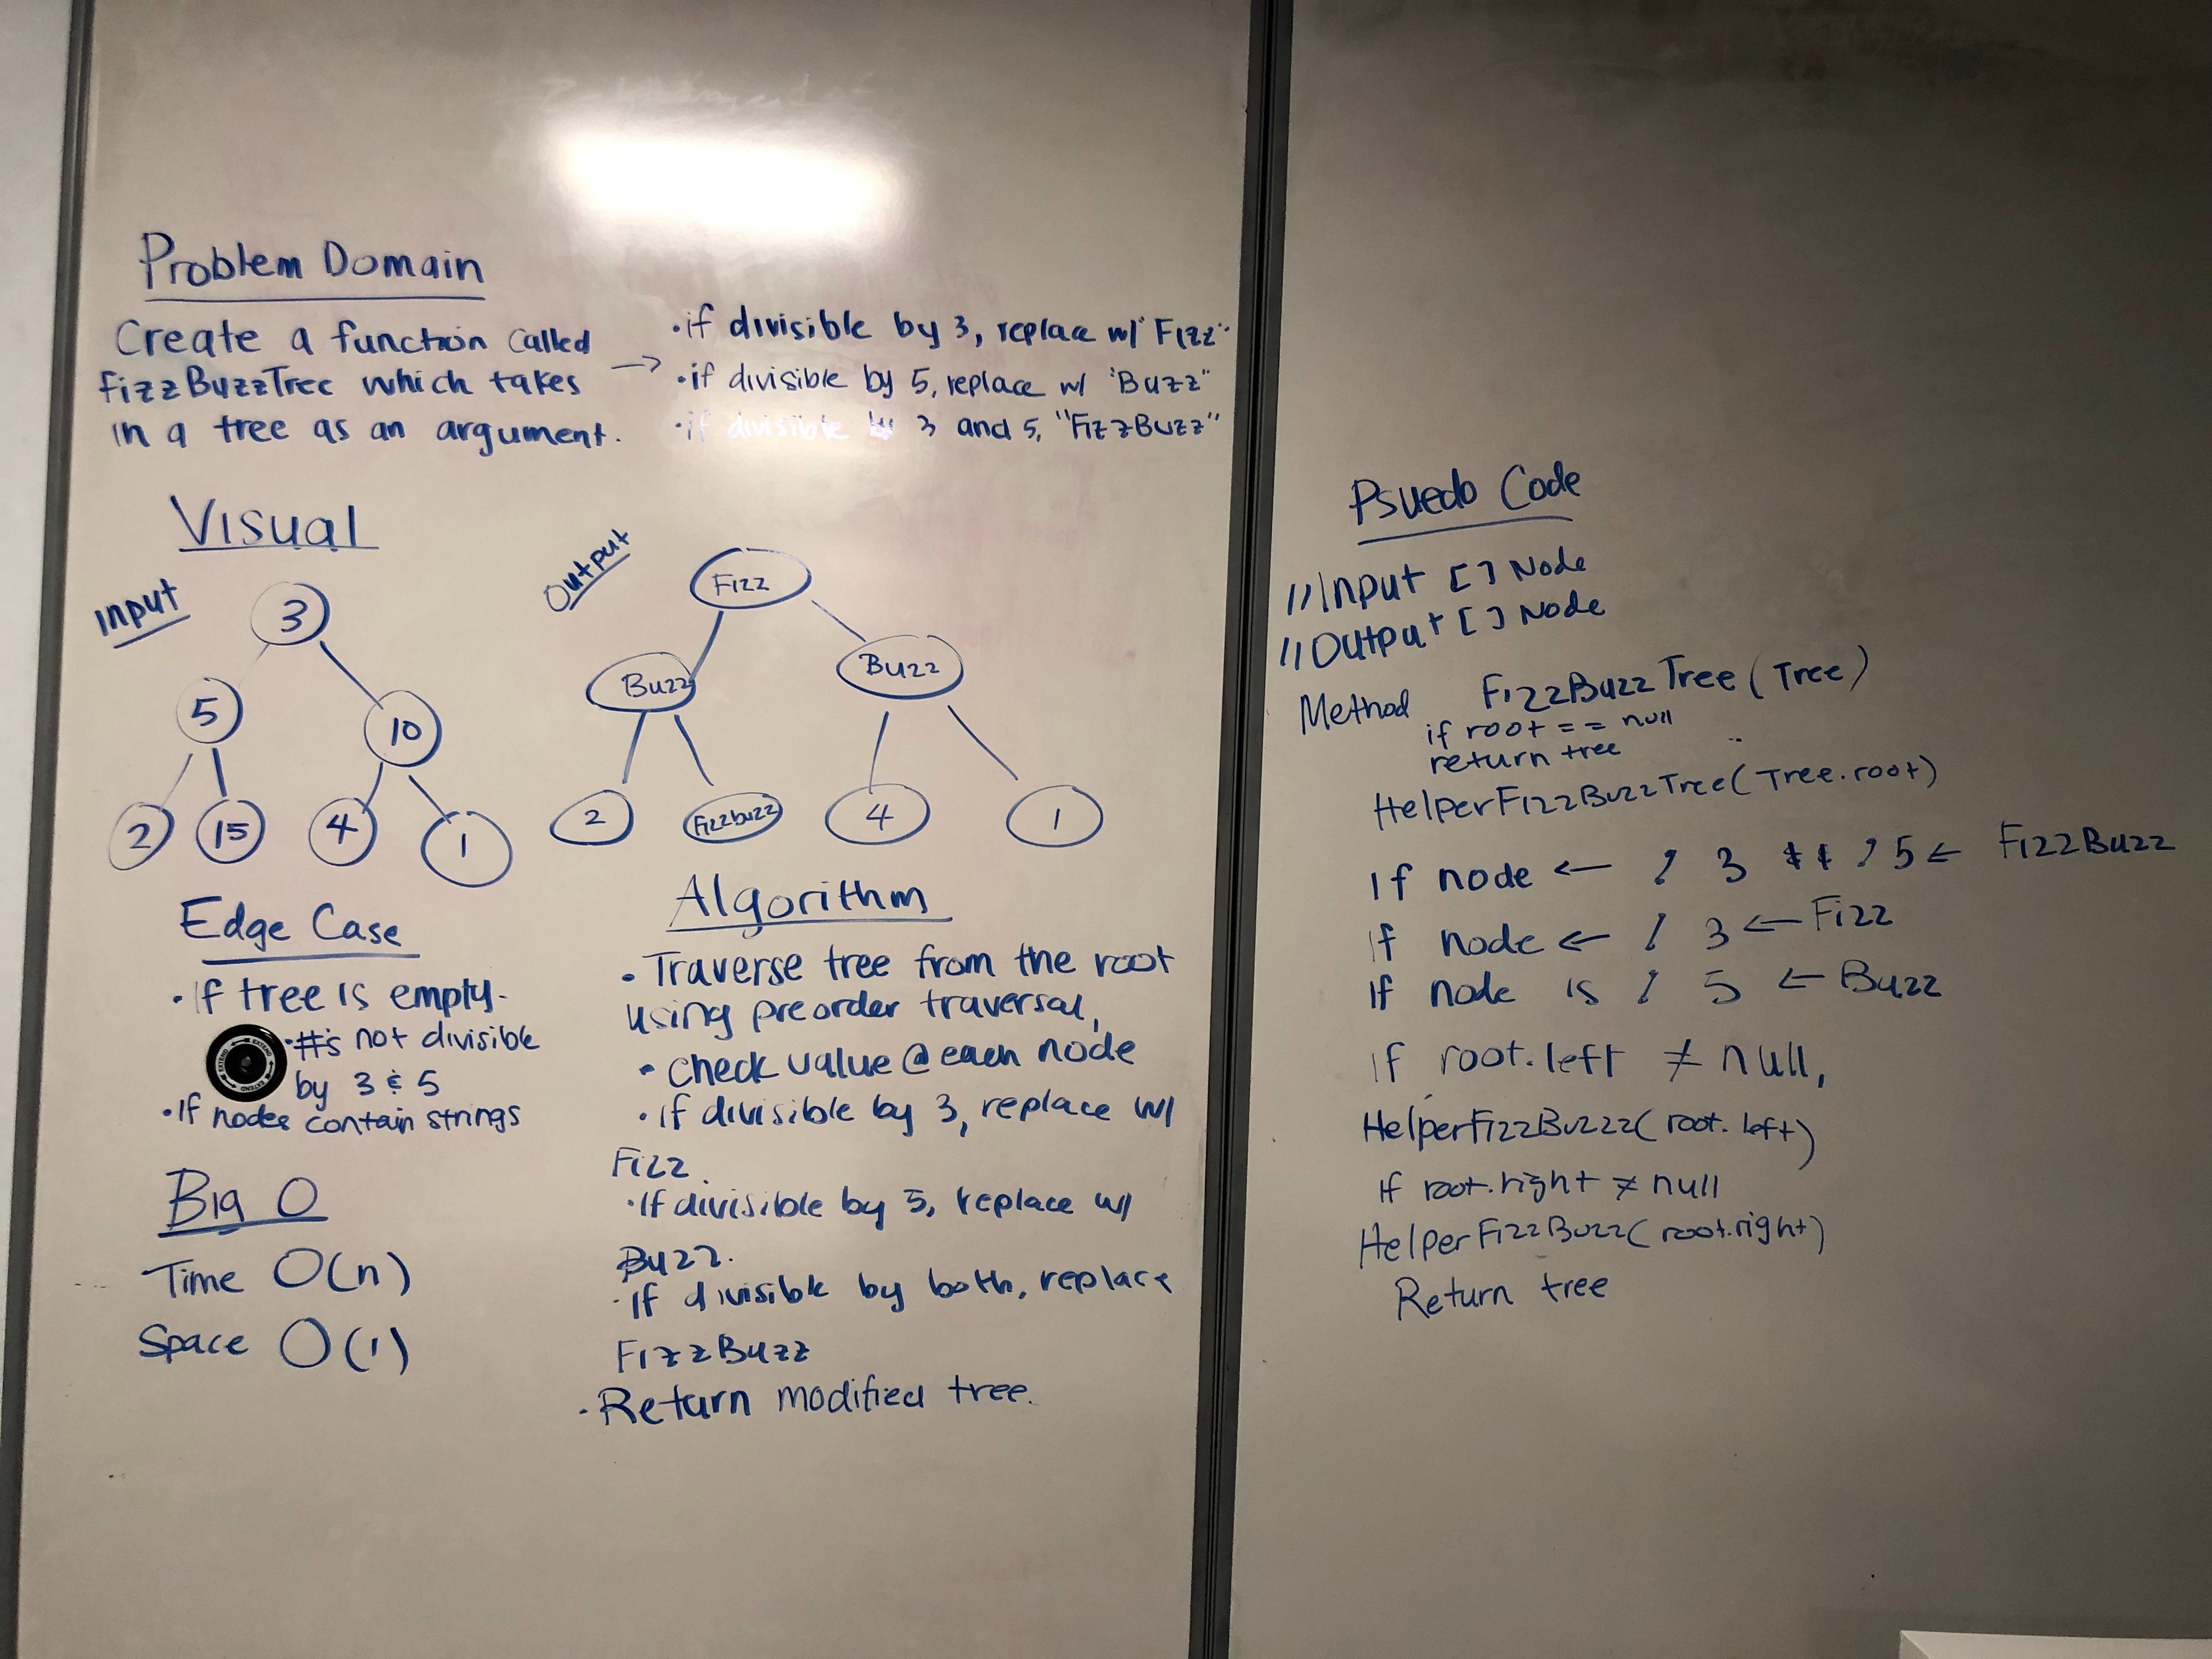 Problem Domain
Create a function called
fizzBuzzTree which takes
in a tree as an argument.
→
• if divisible by 3, replace w/ "Fizz"
• if divisible by 5, replace w/ 'Buzz"
• if divisible by 3 and 5, "FizzBuzz"
Visual
Input
3
5 10
2 15 4 1
Output
Fizz
Buzz Buzz
2 Fizzbuzz 4 1
Edge Case
• If tree is empty.
• #'s not divisible
by 3 & 5
• If nodes contain strings
Big O
Time O(n)
Space O(1)
Algorithm
• Traverse tree from the root
using preorder traversal,
• check value @ each node
• if divisible by 3, replace w/
Fizz.
• If divisible by 5, replace w/
Buzz.
• If divisible by both, replace
FizzBuzz
• Return modified tree.
Psuedo Code
// Input [] Node
// Output [] Node
Method FizzBuzzTree (Tree)
if root == null
return tree
HelperFizzBuzzTree(Tree.root)
If node ← % 3 && % 5 ← FizzBuzz
If node ← % 3 ← Fizz
If node is % 5 ← Buzz
If root.left ≠ null,
HelperFizzBuzzz(root.left)
If root.right ≠ null
HelperFizzBuzz(root.right)
Return tree
EXTEND EXTEND EXTEND EXTEND